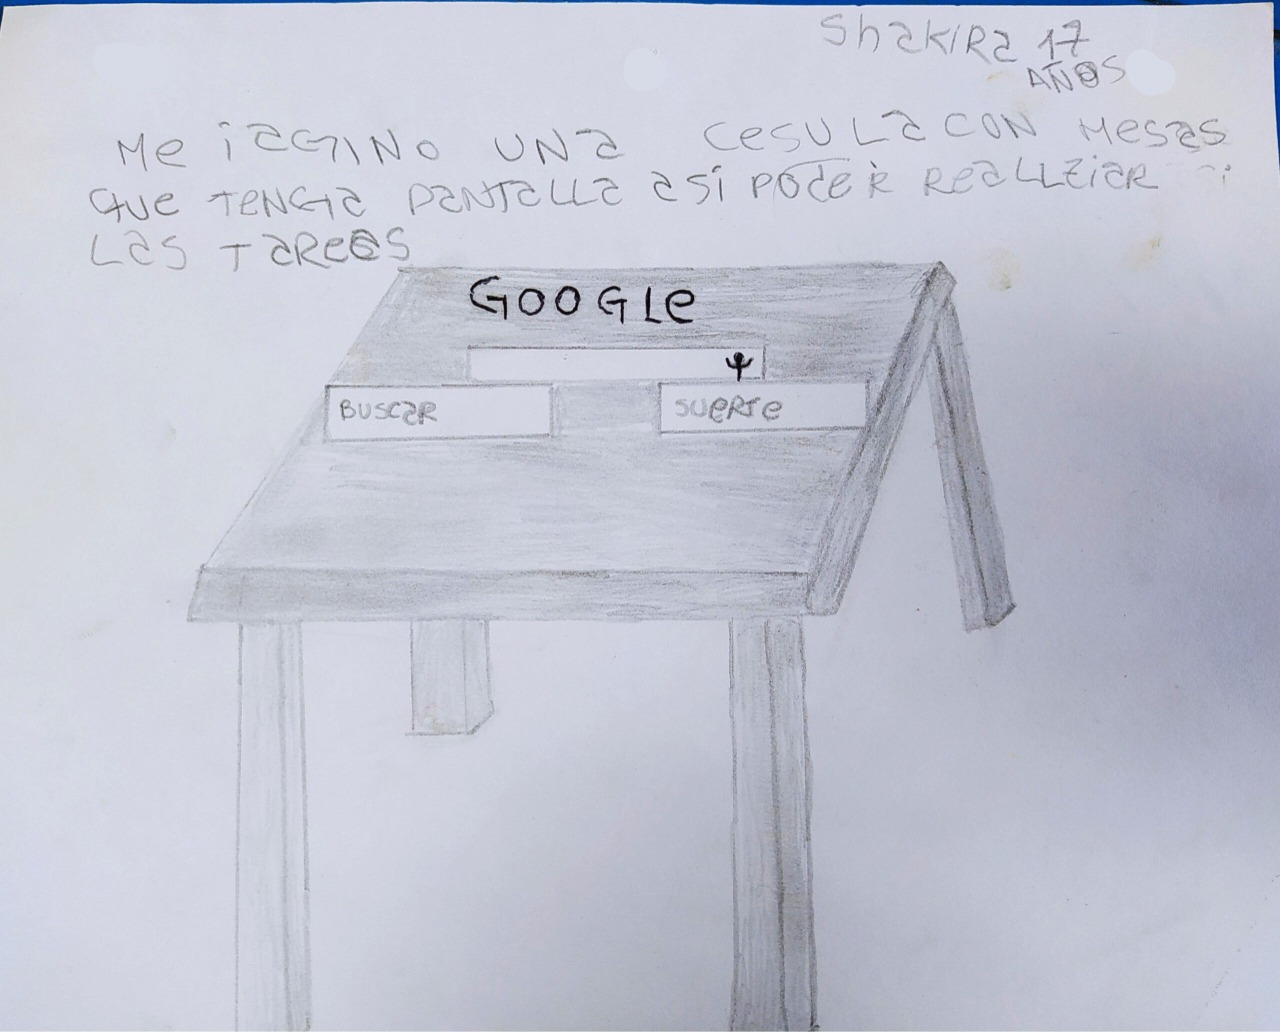 Shakira 17
AÑOS
Me iAGINO UNa CesULa CON Mesas
que TeNGa PaNTaLLa así POdeR ReaLLZiaR
Las TaReas
GOOGLe
BUSCaR
SUeRTe